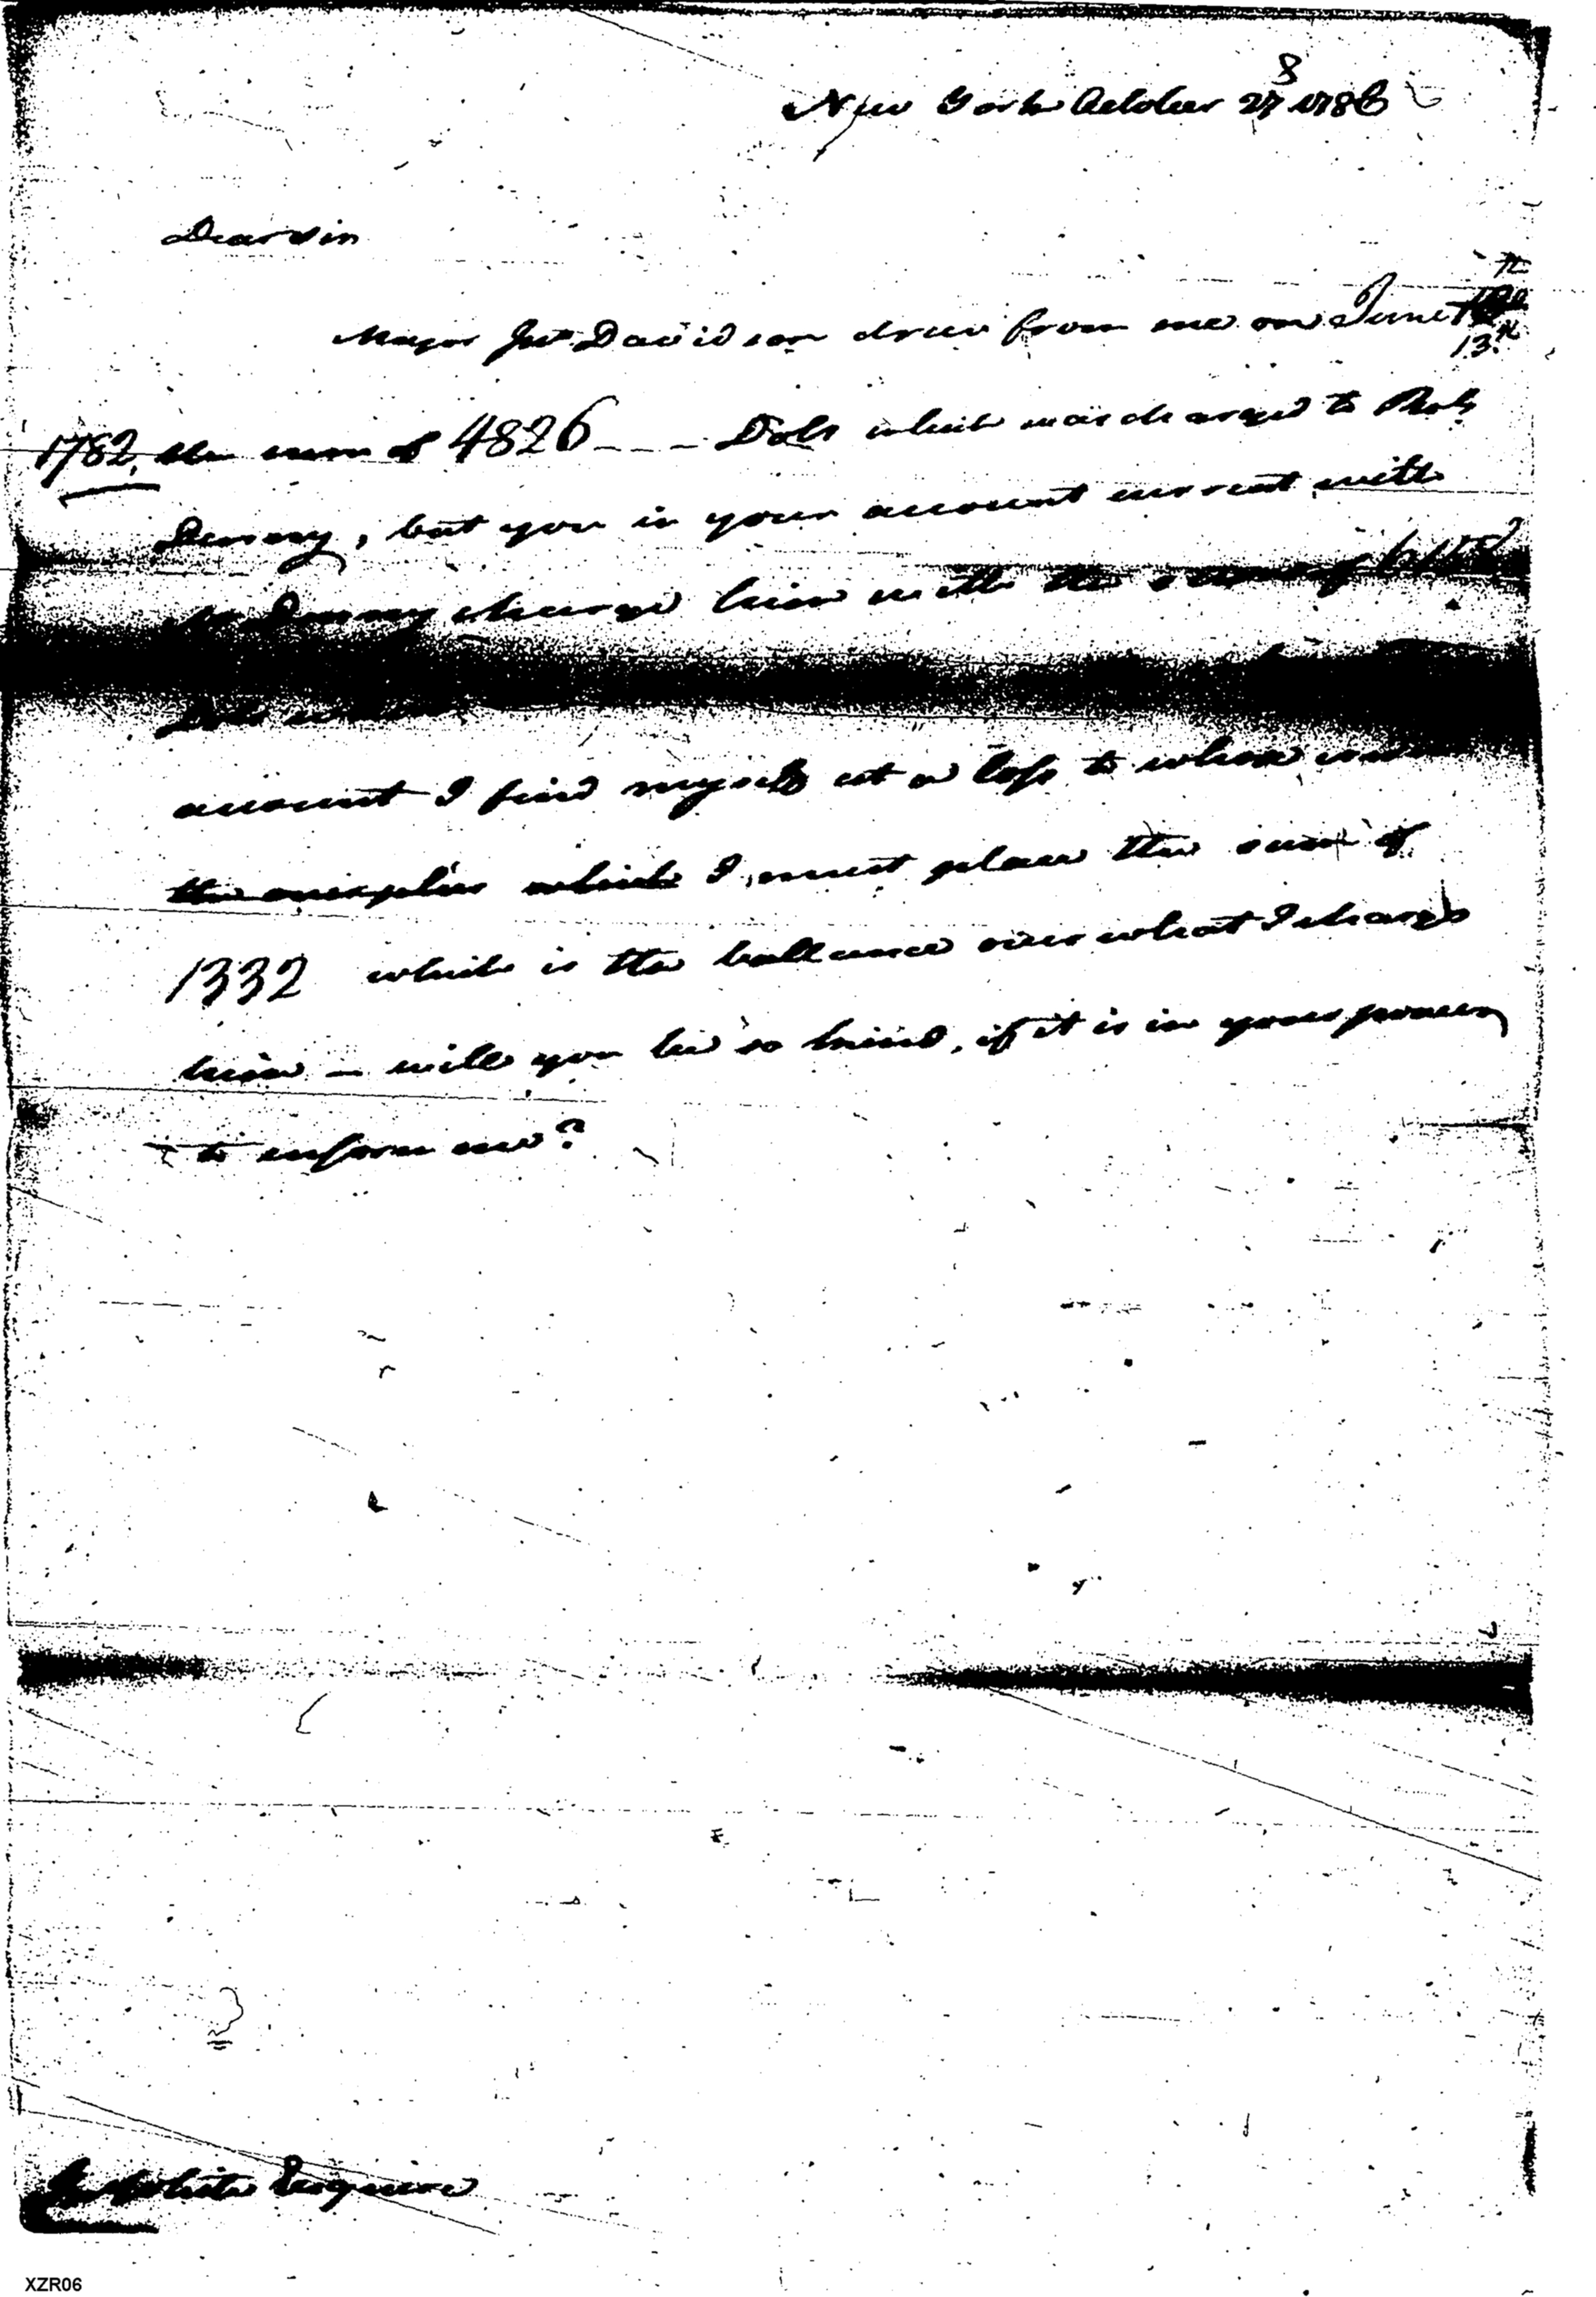 New York October 27 1786
8
Dear Sir
Major Jno Davidson drew from me on June
13th
1782, the sum of 4826 - - - Dols which was charged to Robt
Denny, but you in your account current with
Mr Denny charge him with the sum of 6158
Dols
account I find myself at a loss to whose
the overplus which I must place the sum of
1332 which is the ballance over what I charge
him - will you be so kind, if it is in your power
to inform me?
White Esquire
XZR06